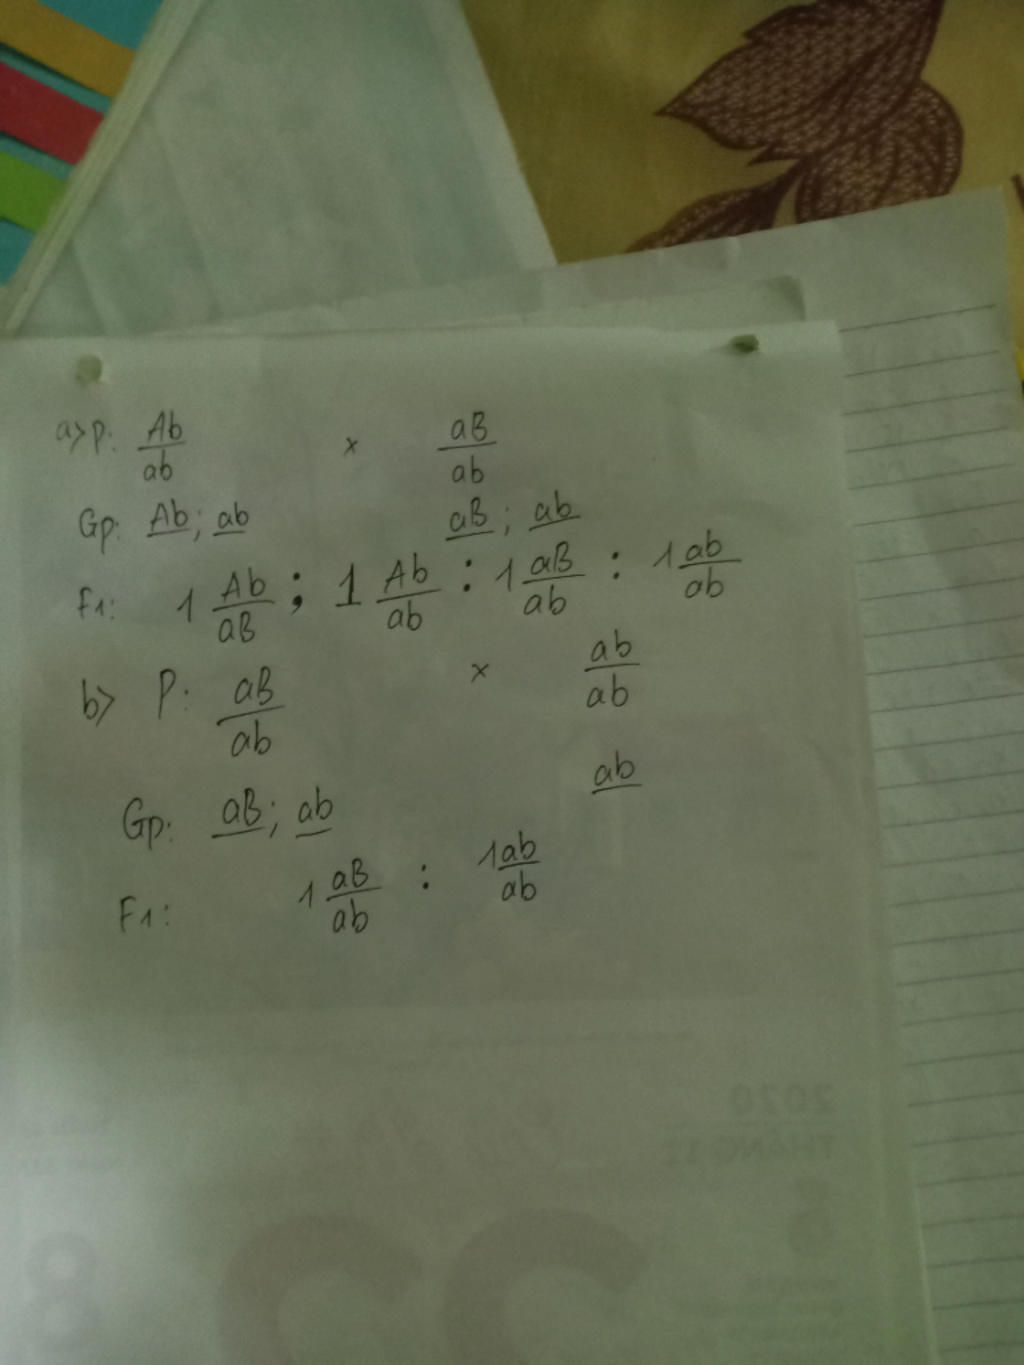 a> P: Ab/ab × aB/ab
Gp: Ab; ab aB; ab
F1: 1 Ab/aB ; 1 Ab/ab : 1 aB/ab : 1 ab/ab
b> P: aB/ab × ab/ab
Gp: aB; ab ab
F1: 1 aB/ab : 1 ab/ab
2020
THÁNG 11